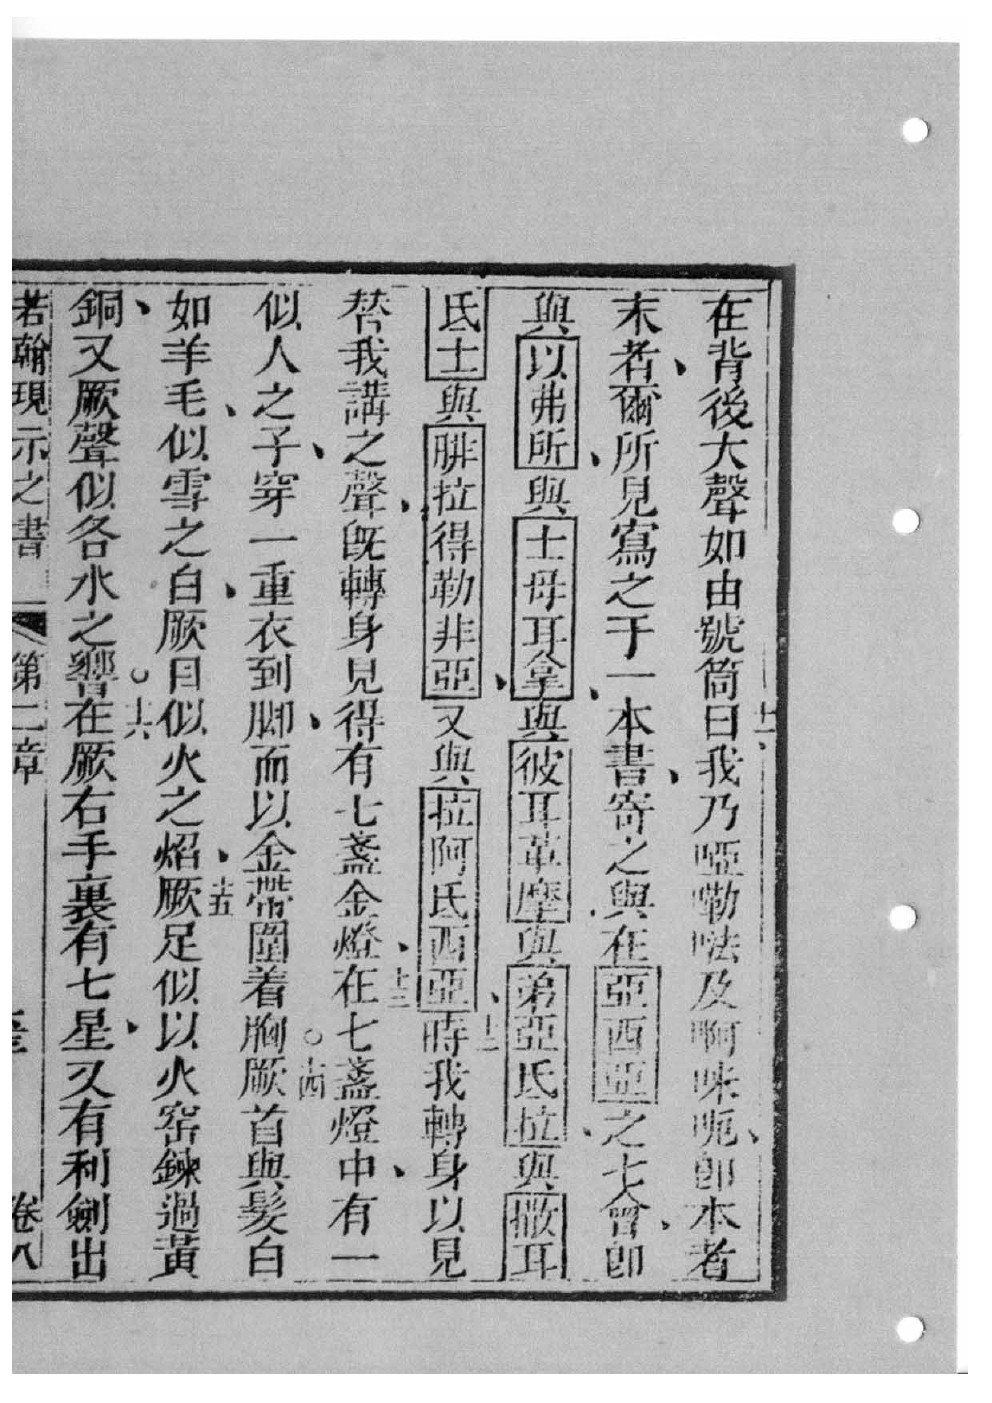 在背後大聲如由號筒曰十一、我乃啞嘞㕸及啊咪呃、卽本者
末者、爾所見寫之于一本書、寄之與在亞西亞之七會、卽
與以弗所、與士母耳拿、與彼耳革摩、與弟亞氐拉、與撒耳
氐士、與腓拉得勒非亞、又與拉阿氐西亞、十二時我轉身以見
替我講之聲、旣轉身見得有七盞金燈、十三在七盞燈中、有一
似人之子、穿一重衣到脚、而以金帶圍着胸。十四厥首與髮白
如羊毛、似雪之白、厥目似火之焰、十五厥足似以火窑鍊過黃
銅、又厥聲似各水之響。十六在厥右手裏有七星、又有利劍出
若翰現示之書 第一章 卷八